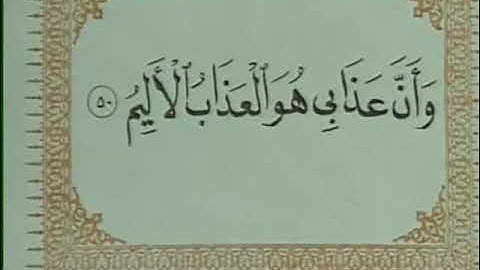 وَأَنَّ عَذَابِي هُوَ ٱلْعَذَابُ ٱلْأَلِيمُ ٥٠